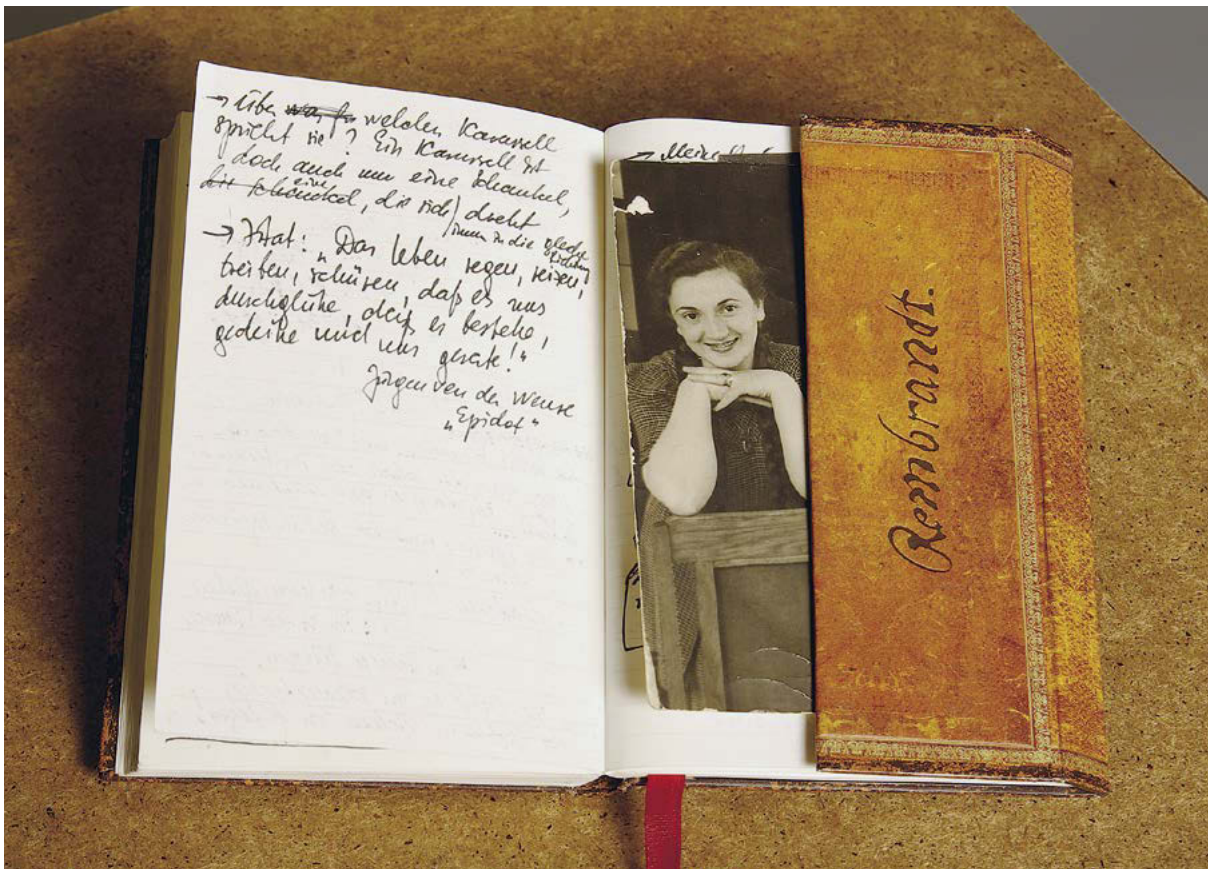 → Über ~~was für~~ welches Karussell
spricht sie? Ein Karussell ist
doch auch nur eine Schaukel,
eine
~~die Schaukel~~, die sich dreht
immer in die gleiche
Richtung
→ Zitat: „Das Leben regen, reizen,
treiben, schüren, daß es uns
durchglühe, daß es bestehe,
gedeihe und uns gerate!"
Jürgen von der Wense
„Epidot"
→ Meine
Rembrandt.